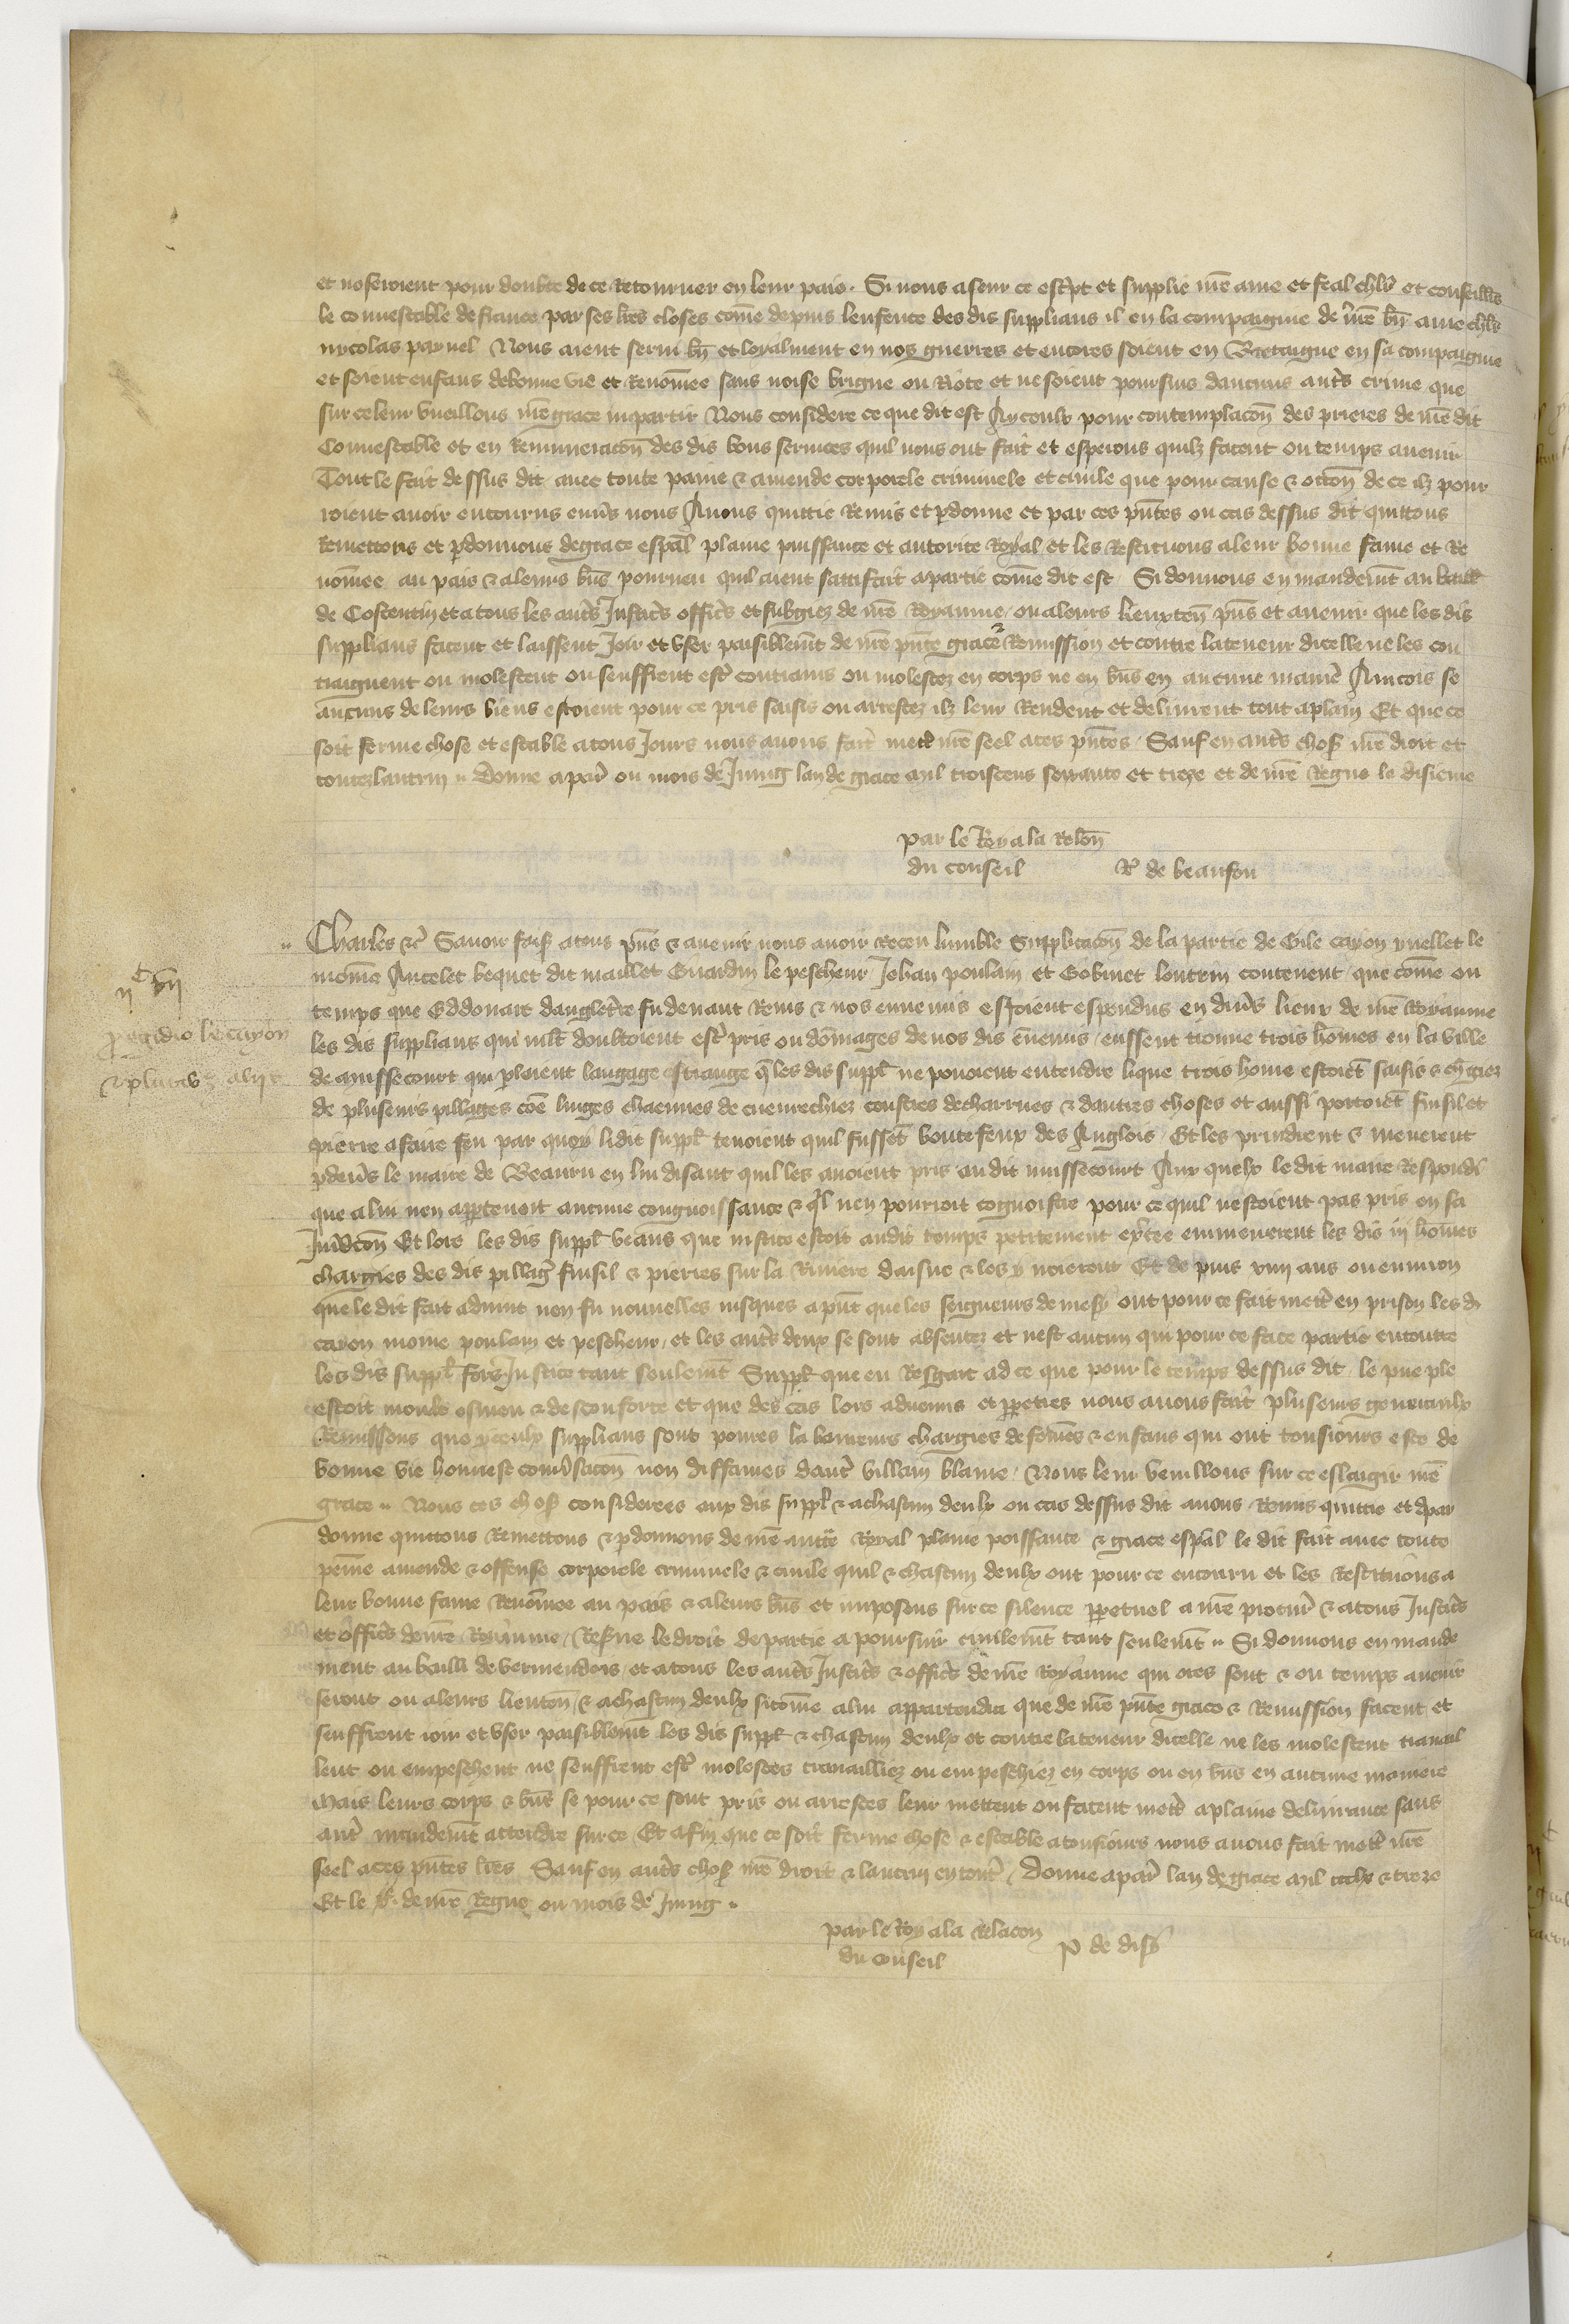 et noseroient pour doubte de ce Retourner en leur pais. Si nous a seur ce escpt et supplie nre ame et feal chlr et conseillr
le connestable de france par ses lres closes come depuis lenfence des dis supplians il en la compaignie de nre bn ame chlr
nycolas paynel Nous aient servi bn et loyalment en nos guerres et encores soient en Bretaigne en sa compaignie
et soient enfans de bonne vie et Renomee sans noise brigue ou Riote et ne soient poursuis daucuns autrs crime que
sur ce leur vueillons nre grace inpartir Nous considere ce que dit est A yceulx pour contemplacon des prieres de nre dit
Connestable et en Remuneracon des dis bons services quil nous ont fait et esperons quilz facent ou temps avenir
Tout le fait dessus dit avec toute paine & amende corporele criminele et civile que pour cause & occon de ce ilz pour
roient avoir encourus envs nous Avons quittie Remis et pdonne et par ces pntes ou cas dessus dit quittons
Remettons et pdonnons de grace espal plaine puissance et autorite Royal et les Restituons a leur bonne fame et Re
nomee au pais & a leurs bns pourveu quil aient satisfait a partie come dit est. Si donnons en mandemt au bailli
de Costentin et a tous les autrs Justics offics et subgiez de nre Royaume ou a leurs lieuxten pns et avenir que les dis
supplians facent et laissent Joir et user paisiblemt de nre pnte grace & Remission et contre la teneur dicelle ne les con
traignent ou molestent ou seuffrent estr contrains ou molestez en corps ne en bns en aucune manie Aincois se
aucuns de leurs biens estoient pour ce pris saisis ou arrestez ilz leur Rendent et delivrent tout a plain Et que ce
soit ferme chose et estable a tous Jours nous avons fait mettr nre seel a ces pntes. Sauf en autrs chos nre droit et
toutez lautruy Donne a pari ou mois de Juing lan de grace mil troiscens soixante et treze et de nre Regne le disieme
par le Roy a la Relon
du conseil R de beaufou
Charles &c Savoir fais a tous pns & avenir nous avoir Receu lumble Supplicacon de la partie de Gile cayon vuellet le
moine Ancelet bequet dit maillet Girardin le pescheur Jehan poulain et Gobinet loutrin contenent que come ou
temps que Eddouart dangletrre fu devant Reins & nos ennemis estoient espendus en divs lieux de nre Royaume
les dis supplians qui mlt doubtoient estr pris ou domages de nos dis ennemis eussent trouve trois homes en la ville
de anissecourt qui ploient langage estrange que les dis suppl ne povoient entendre lique trois home estoiet saisis & chgiez
de pluseurs pillages coe linges chaennes de cuevrechiez coustres de charrues & dautres choses et aussi portoiet fusil et
pierre a faire feu par quoy li dit suppl tenoient quil fusset boutefeux des Anglois Et les prindrent & menerent
pdevs le maire de Beauru en lui disant quil les avoient pris audit anissecourt Aux quelx le dit maire Respondi
que a lui nen appartenoit aucune congnoissance & ql nen pourroit cognoistre pour ce quil nestoient pas pris en sa
Juridicon Et lors les dis suppl veans que iustice estoit audit temps petitement exrcee emmenerent les dis iij homes
chargies des dis pillages fusil & pierres sur la Riviere daisne & les y noierent Et depuis xiiij ans ou environ
que le dit fait advint nen fu nouvelles iusques a pnt que les seigneurs de mesy ont pour ce fait mettr en prison les d
cayon moine poulain et pescheur, et les autrs deux se sont absentez et nest aucun qui pour ce face partie encontre
les dis suppl fors Justice tant seulemt Suppl que eu Resgart ad ce que pour le temps dessus dit le pueple
estoit moult esmeu & desconforte et que des cas lors advenus et ppetres nous avons fait pluseurs generaulx
Remissons que yceulx supplians sont povres laboureurs chargies de femes & enfans qui ont tousiours este de
bonne vie honnest convsacon non diffames dautr villain blame. Nous leur veuillons sur ce eslargir nre
grace Nous ces chos considerees aux dis suppl & a chascun deulx ou cas dessus dit avons Remis quittie et par
donne quittons Remettons & pdonnons de nre autte Royal plaine poissance & grace espal le dit fait avec toute
peine amende & offense corporele criminele & civile quil & chascun deulx ont pour ce encouru et les Restituons a
leur bonne fame Renomee au pais & a leurs bns et imposons sur ce silence ppetuel a nre procur & a tous Justics
et offics de nre Royaume, Reserve le droit de partie a poursuir civilemt tant seulemt Si donnons en mande
ment au bailli de vermendois et a tous les autrs Justics & offics de nre Royaume qui ores sont & ou temps avenir
seront ou a leurs lieuten & a chascun deulx si come a lui appartendra que de nre pnte grace & Remission facent et
seuffrent joir et user paisiblemt les dis suppl & chascun deulx et contre la teneur dicelle ne les molestent travail
lent ou empeschent ne seuffrent estr molestes travailliez ou empeschiez en corps ou en bns en aucune maniere
Mais leurs corps & bns se pour ce sont pris ou arrestes leur mettent ou facent mettr a plaine delivrance sans
autr mandemt attendre sur ce Et afin que ce soit ferme chose & estable a tousiours nous avons fait mettr nre
seel a ces pntes lres Sauf en autrs chos nre droit & lautruy en tout. Donne a pari lan de grace mil ccclx & treze
Et le x. de nre Regne ou mois de Juing.
par le Roy a la Relacon
du conseil P de disy
pro egidio le cayon
& pluribus aliis